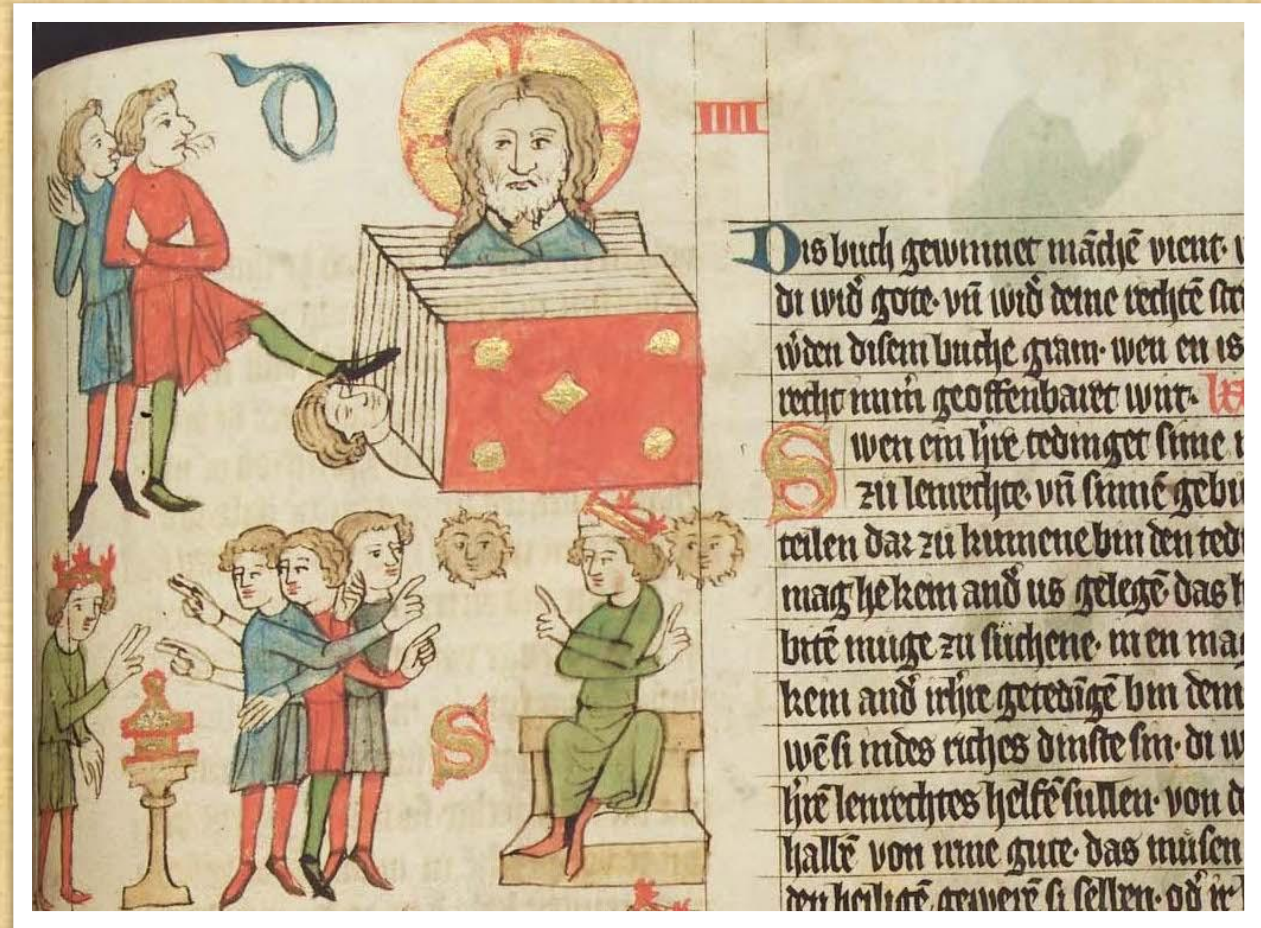 D
IIII
Dis buch gewinnet māchē vient· v
di wid̄ gote· vn̄ wid̄ deme rechtē ſtr
w̄den diſem buche gram· wen en is
recht num̄ geoffenbaret wirt·
Swen ein h̄re tedinget ſime
zu lenrechte· vn̄ ſinnē gebu
teilen dar zu kumene bin den ted
mag he kein and̄ us gelegē das h
bitē muge zu ſuchene· m en mag
kein and̄ ir h̄re getedīgē bin dem
wē ſi in des riches dinſte ſin· di w
h̄rē lenrechtes helfē ſullen· von d
S
hallē von irme gute· das muſen
den heiligē gewerē ſi ſelben· od̄ ir